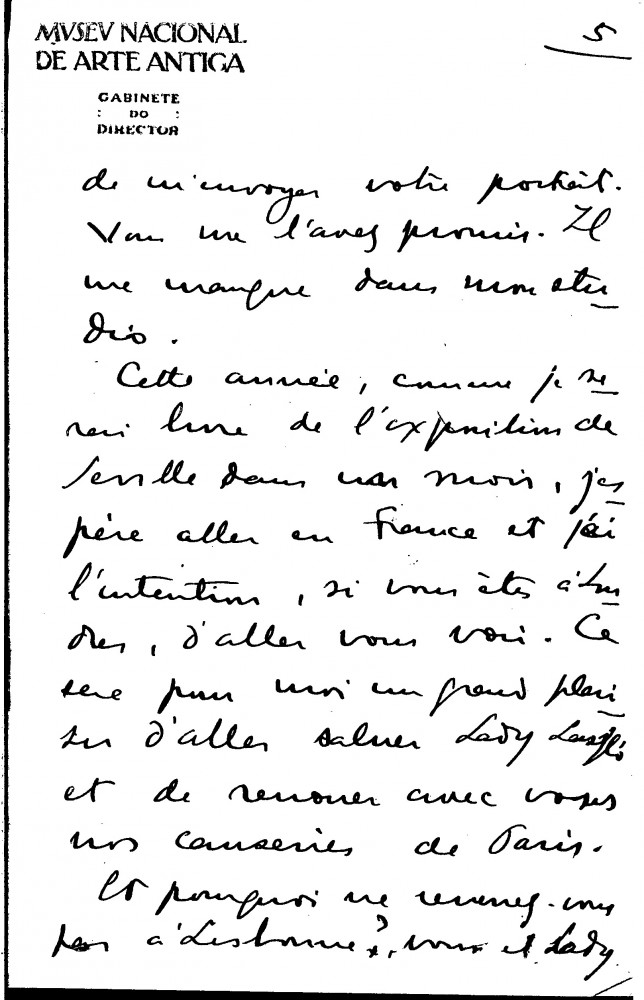 MVSEV NACIONAL
DE ARTE ANTIGA
5
GABINETE
: DO :
DIRECTOR
de m'envoyer votre portrait.
Vous me l'avez promis. Il
me manque dans mon stu
dio.
Cette année, comme je se
rai libre de l'exposition de
Seville dans un mois, j'es
père aller en France et j'ai
l'intention, si vous êtes à Lon
dres, d'aller vous voir. Ce
sera pour moi un grand plai
sir d'aller saluer Lady Laszló
et de renouer avec vous
nos causeries de Paris.
Et pourquoi ne revenez-vous
pas à Lisbonne?, vous et Lady